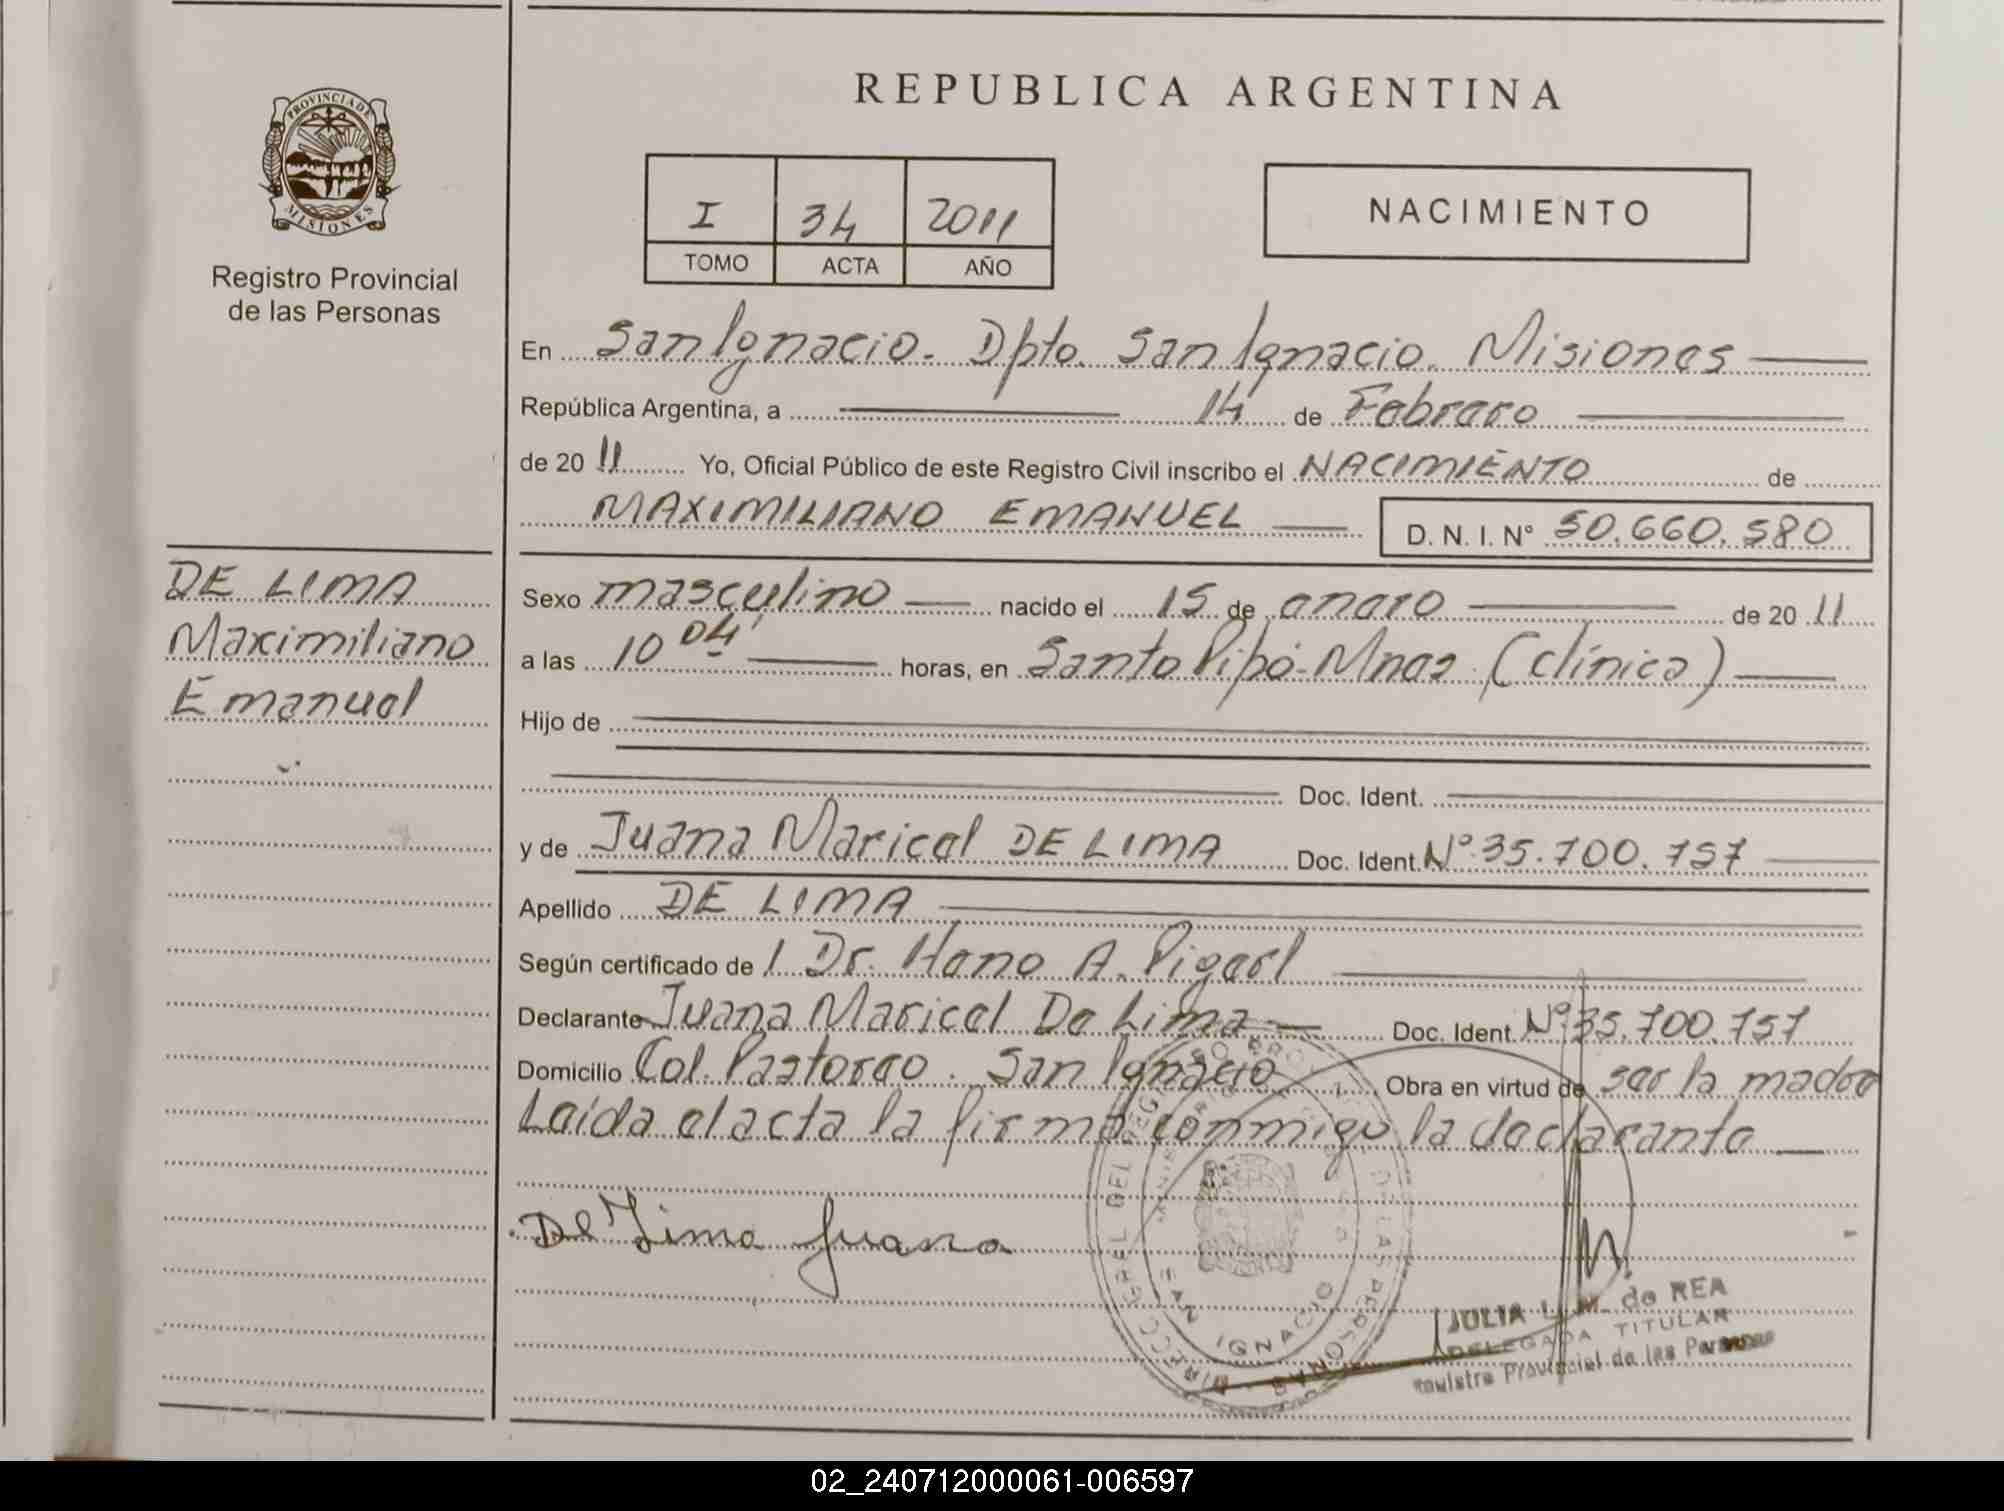 REPUBLICA ARGENTINA
PROVINCIA DE
MISIONES
Registro Provincial
de las Personas
I 34 2011
TOMO ACTA AÑO
NACIMIENTO
En San Ignacio. Dpto. San Ignacio. Misiones
República Argentina, a 14 de Febrero
de 20 11 Yo, Oficial Público de este Registro Civil inscribo el NACIMIENTO de
MAXIMILIANO EMANUEL D. N. I. N° 50.660.580
DE LIMA
Maximiliano
Emanuel
Sexo masculino nacido el 15 de enero de 20 11
a las 10 04' horas, en Santo Pipó-Mnes (clínica)
Hijo de
Doc. Ident.
y de Juana Maricel DE LIMA Doc. Ident. N° 35.700.757
Apellido DE LIMA
Según certificado de 1 Dr. A.
Declarante Juana Maricel De Lima Doc. Ident. N° 35.700.757
Domicilio Col. Pastoreo. San Ignacio Obra en virtud de ser la madre
Leída el acta la firma conmigo la declarante
De Lima Juana
SAN IGNACIO
JULIA L. M. de REA
DELEGADA TITULAR
Registro Provincial de las Personas
02_240712000061-006597